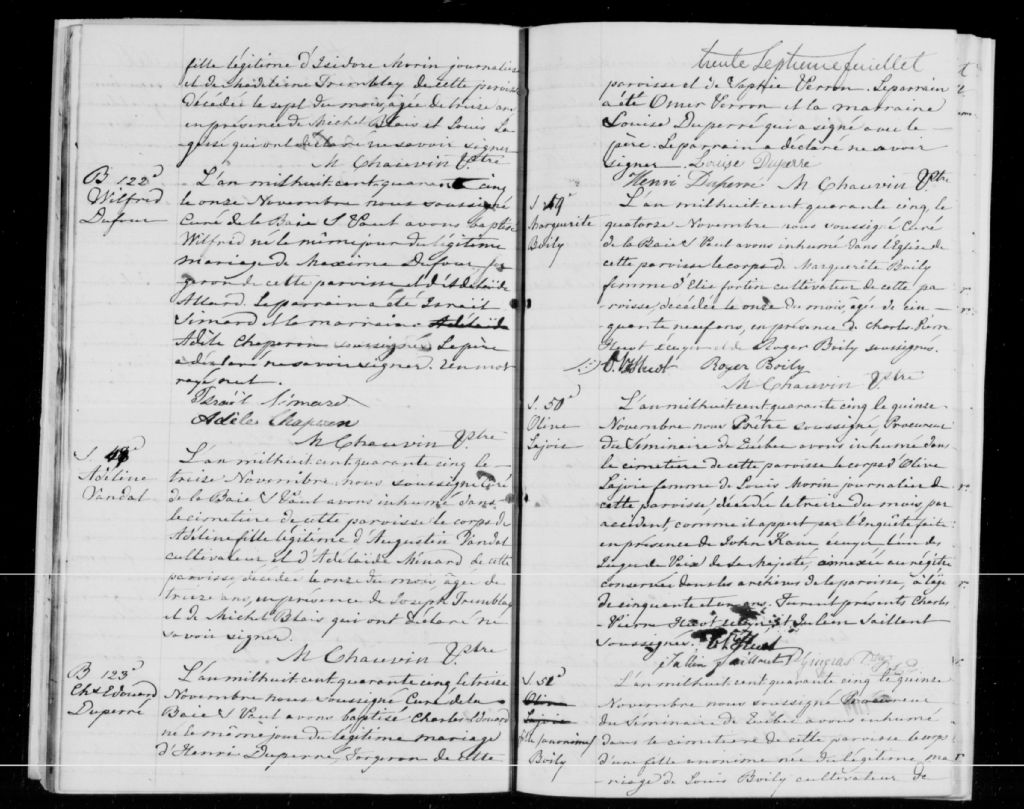 fille légitime d'Isidore Morin journalier
et de Madeleine Tremblay de cette paroisse
décédée le sept du mois, agée de treize ans
en présence de Michel Blais et Louis
qui ont déclaré ne savoir signer
M Chauvin Ptre
B 122d
Wilfred
Dufour
L'an mil huit cent quarante cinq
le onze Novembre nous soussigné
Curé de la Baie St Paul avons baptisé
Wilfred né le même jour du légitime
mariage de Maxime Dufour
de cette paroisse et d'Adelaïde
Allard. Le parrain a été Israël
Simard et la marraine Adélaïde
Adèle Chaperon soussignés Le père
a déclaré ne savoir signer. Un mot
rayé nul.
Israël Simard
Adèle Chaperon
M Chauvin Ptre
S 48d
Adéline
Vandal
L'an mil huit cent quarante cinq le
treize Novembre nous soussigné Curé
de la Baie St Paul avons inhumé dans
le cimetière de cette paroisse le corps de
Adéline fille légitime d'Augustin Vandal
cultivateur et d'Adelaide Ménard de cette
paroisse, décédée le onze du mois, agée de
treize ans, en présence de Joseph Tremblay
et de Michel Blais qui ont déclaré ne
savoir signer.
M Chauvin Ptre
B 123d
Chs Edouard
Duperré
L'an mil huit cent quarante cinq le treize
Novembre nous soussigné Curé de la
Baie St Paul avons baptisé Charles Edouard
né le même jour du légitime mariage
d'Henri Duperré, forgeron de cette
trente Septieme feuillet
paroisse et de Sophie Verron. Le parrain
a été Omer Verron et la marraine
Louise Duperré qui a signé avec le
père. Le parrain a déclaré ne savoir
signer Louise Duperré
Henri Duperré M Chauvin Ptre
S 49
Marguerite
Boily
L'an mil huit cent quarante cinq, le
quatorze Novembre nous soussigné Curé
de la Baie St Paul avons inhumé dans l'Eglise de
cette paroisse le corps de Marguerite Boily
femme d'Elie fortin cultivateur de cette pa
roisse, décédée le onze du mois, agée de cin
quante neuf ans, en présence de Charles Pierre
Huot écuyer et de Roger Boily soussignés.
Huot Roger Boily
M Chauvin Ptre
S. 50d
Olive
Lajoie
L'an mil huit cent quarante cinq le quinze
Novembre nous Prêtre soussigné, Procureur
du Séminaire de Québec avons inhumé dans
le cimetière de cette paroisse le corps d'Olive
Lajoie femme de Louis Morin journalier de
cette paroisse, décédée le treize du mois, par
accident, comme il appert par l'Enquête faite
en présence de John Kane écuyer l'un des
Juges de Paix de Sa Majesté, annexée au régitre
conservé dans les archives de la paroisse, à l'age
de cinquante et un ans. Furent présents Charles
Pierre Huot et Julien Saillant
soussignés.
Julien Saillant Gingras Ptre
S 51d
Olive
Lajoie
fille anonime
Boily
L'an mil huit cent quarante cinq le quinze
Novembre nous soussigné Procureur
du Séminaire de Québec avons inhumé
dans le cimetière de cette paroisse le corps
d'une fille anonime née du légitime ma
riage de Louis Boily cultivateur de